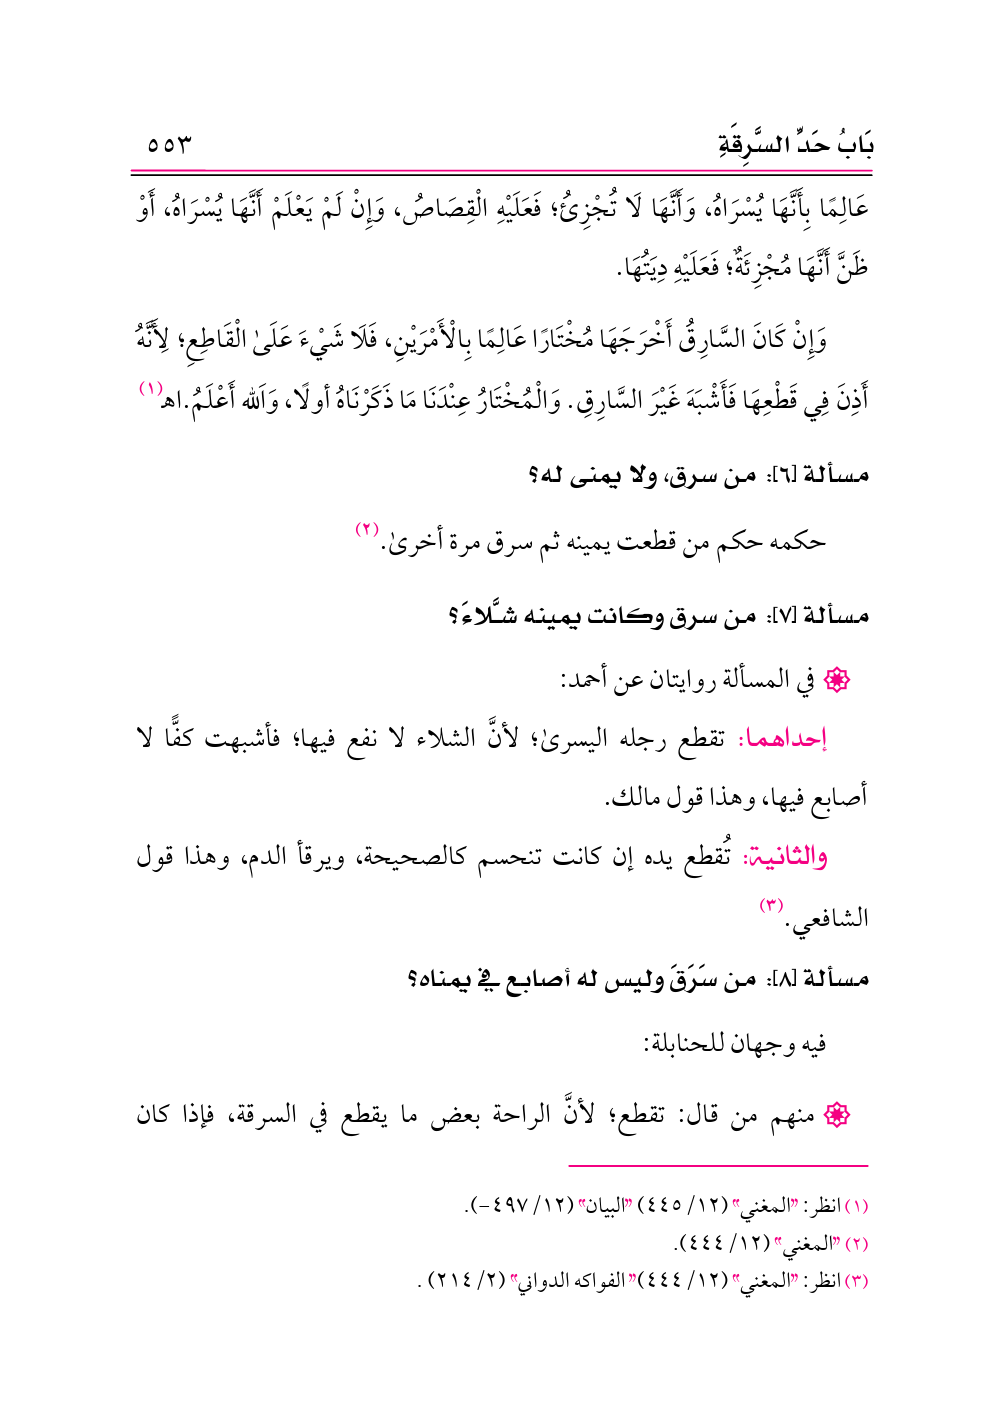 بَابُ حَدِّ السَّرِقَةِ ٥٥٣
عَالِمًا بِأَنَّهَا يُسْرَاهُ، وَأَنَّهَا لَا تُجْزِئُ؛ فَعَلَيْهِ الْقِصَاصُ، وَإِنْ لَمْ يَعْلَمْ أَنَّهَا يُسْرَاهُ، أَوْ
ظَنَّ أَنَّهَا مُجْزِئَةٌ؛ فَعَلَيْهِ دِيَتُهَا.
وَإِنْ كَانَ السَّارِقُ أَخْرَجَهَا مُخْتَارًا عَالِمًا بِالْأَمْرَيْنِ، فَلَا شَيْءَ عَلَىٰ الْقَاطِعِ؛ لِأَنَّهُ
أَذِنَ فِي قَطْعِهَا فَأَشْبَهَ غَيْرَ السَّارِقِ. وَالْمُخْتَارُ عِنْدَنَا مَا ذَكَرْنَاهُ أولًا، وَاَلله أَعْلَمُ.اه‍ (١)
مسألة [٦]: من سرق، ولا يمنى له؟
حكمه حكم من قطعت يمينه ثم سرق مرة أخرىٰ. (٢)
مسألة [٧]: من سرق وكانت يمينه شلَّاءَ؟
في المسألة روايتان عن أحمد:
إحداهما: تقطع رجله اليسرىٰ؛ لأنَّ الشلاء لا نفع فيها؛ فأشبهت كفًّا لا
أصابع فيها، وهذا قول مالك.
والثانية: تُقطع يده إن كانت تنحسم كالصحيحة، ويرقأ الدم، وهذا قول
الشافعي. (٣)
مسألة [٨]: من سَرَقَ وليس له أصابع في يمناه؟
فيه وجهان للحنابلة:
منهم من قال: تقطع؛ لأنَّ الراحة بعض ما يقطع في السرقة، فإذا كان
(١) انظر: "المغني" (١٢/ ٤٤٥) "البيان" (١٢/ ٤٩٧-).
(٢) "المغني" (١٢/ ٤٤٤).
(٣) انظر: "المغني" (١٢/ ٤٤٤)" الفواكه الدواني" (٢/ ٢١٤) .